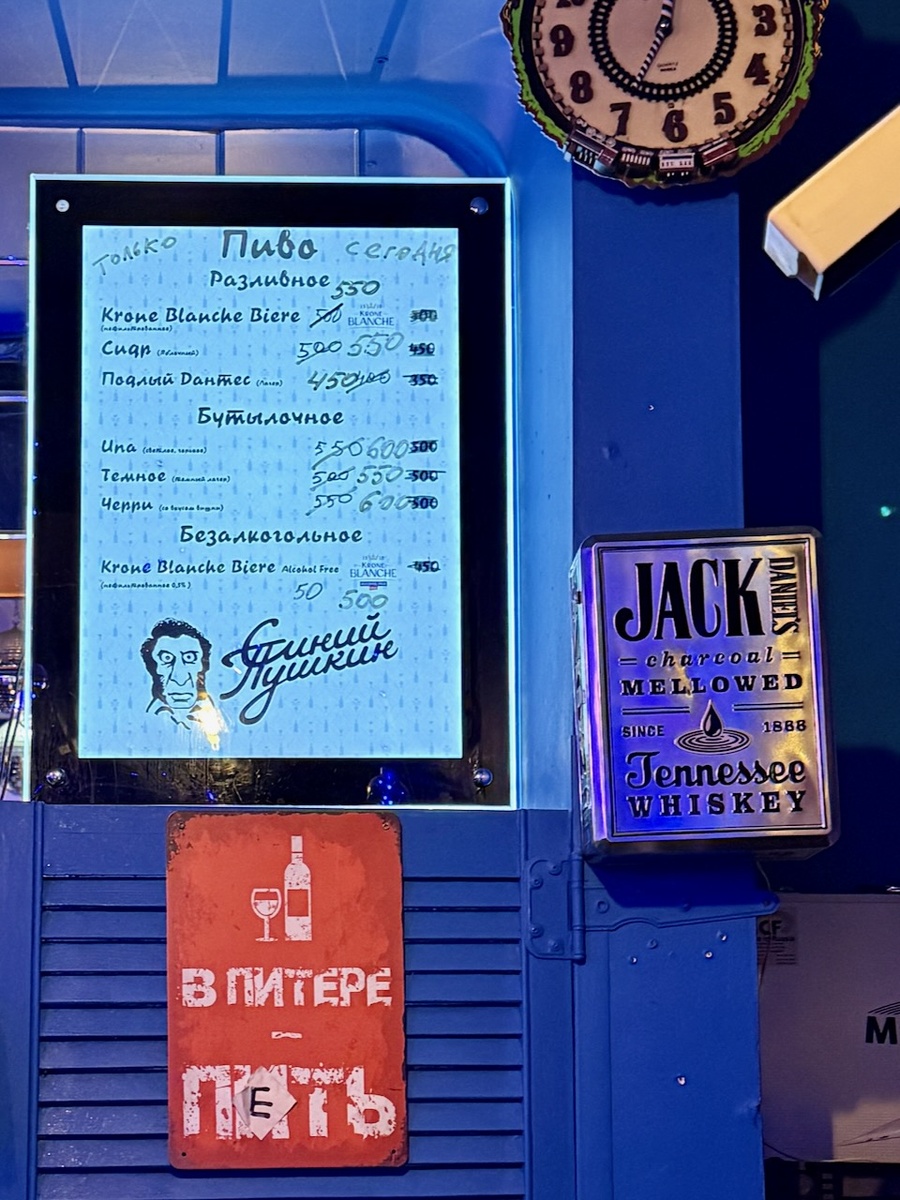 9 3
8 4
7 6 5
QUARTZ
только Пиво сегодня
Разливное 550
Krone Blanche Biere 500 KRONE BLANCHE 500
(нефильтрованное)
Сидр (Яблочный) 500 550 450
Подлый Дантес (Лагер) 450 400 350
Бутылочное
Ипа (светлое, черное) 550 600 500
Темное (темный лагер) 500 550 500
Черри (со вкусом вишни) 550 600 500
Безалкогольное
Krone Blanche Biere Alcohol Free KRONE BLANCHE 450
(нефильтрованное 0,5%)
50 500
Синий
Пушкин
JACK DANIEL'S
charcoal
MELLOWED
SINCE 1888
Tennessee
WHISKEY
В ПИТЕРЕ
–
ПЕТЬ
CF
M